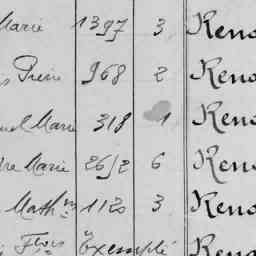 Marie 1397 3 Reno
Pierre 968 2 Reno
Marie 318 1 Reno
Marie 2612 6 Reno
Math 1120 3 Reno
Flois Exempté Reno